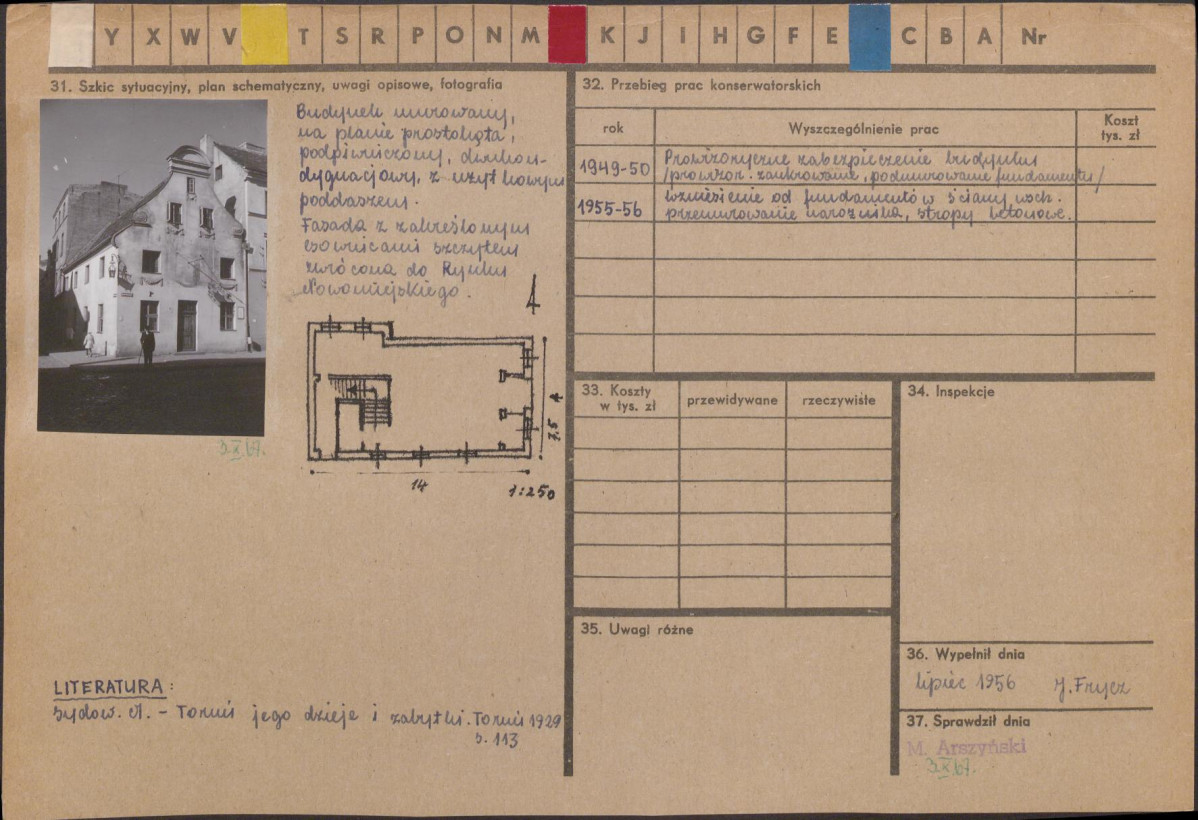 Y X W V T S R P O N M K J I H G F E C B A Nr
31. Szkic sytuacyjny, plan schematyczny, uwagi opisowe, fotografia
Budynek murowany,
na planie prostokąta,
podpiwniczony, dwukon-
dygnacjowy, z użytkowym
poddaszem.
Fasada z zakreślonym
esownicami szczytem
zwrócona do Rynku
Nowomiejskiego.
3.X.67.
7,5
14
1:250
LITERATURA:
Sydow. A. - Toruń jego dzieje i zabytki. Toruń 1929
s. 113
32. Przebieg prac konserwatorskich
rok
Wyszczególnienie prac
Koszt
tys. zł
1949-50
Prowizoryczne zabezpieczenie budynku
/prowizor. zankrowanie, podmurowanie fundamentu/
1955-56
wzniesienie od fundamentów ściany wsch.
przemurowanie narożnika, stropy betonowe.
33. Koszty
w tys. zł
przewidywane
rzeczywiste
34. Inspekcje
35. Uwagi różne
36. Wypełnił dnia
lipiec 1956 J. Frycz
37. Sprawdził dnia
M. Arszyński
3.X.67.